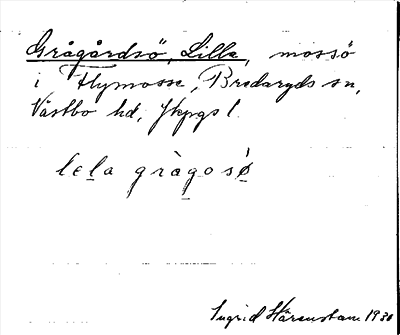 Grågårdsö, Lilla, mossö
i Flymosse, Bredaryds sn,
Västbo hd, Jkpgs l.
lela grågosö
Ingrid Härenstam 1930